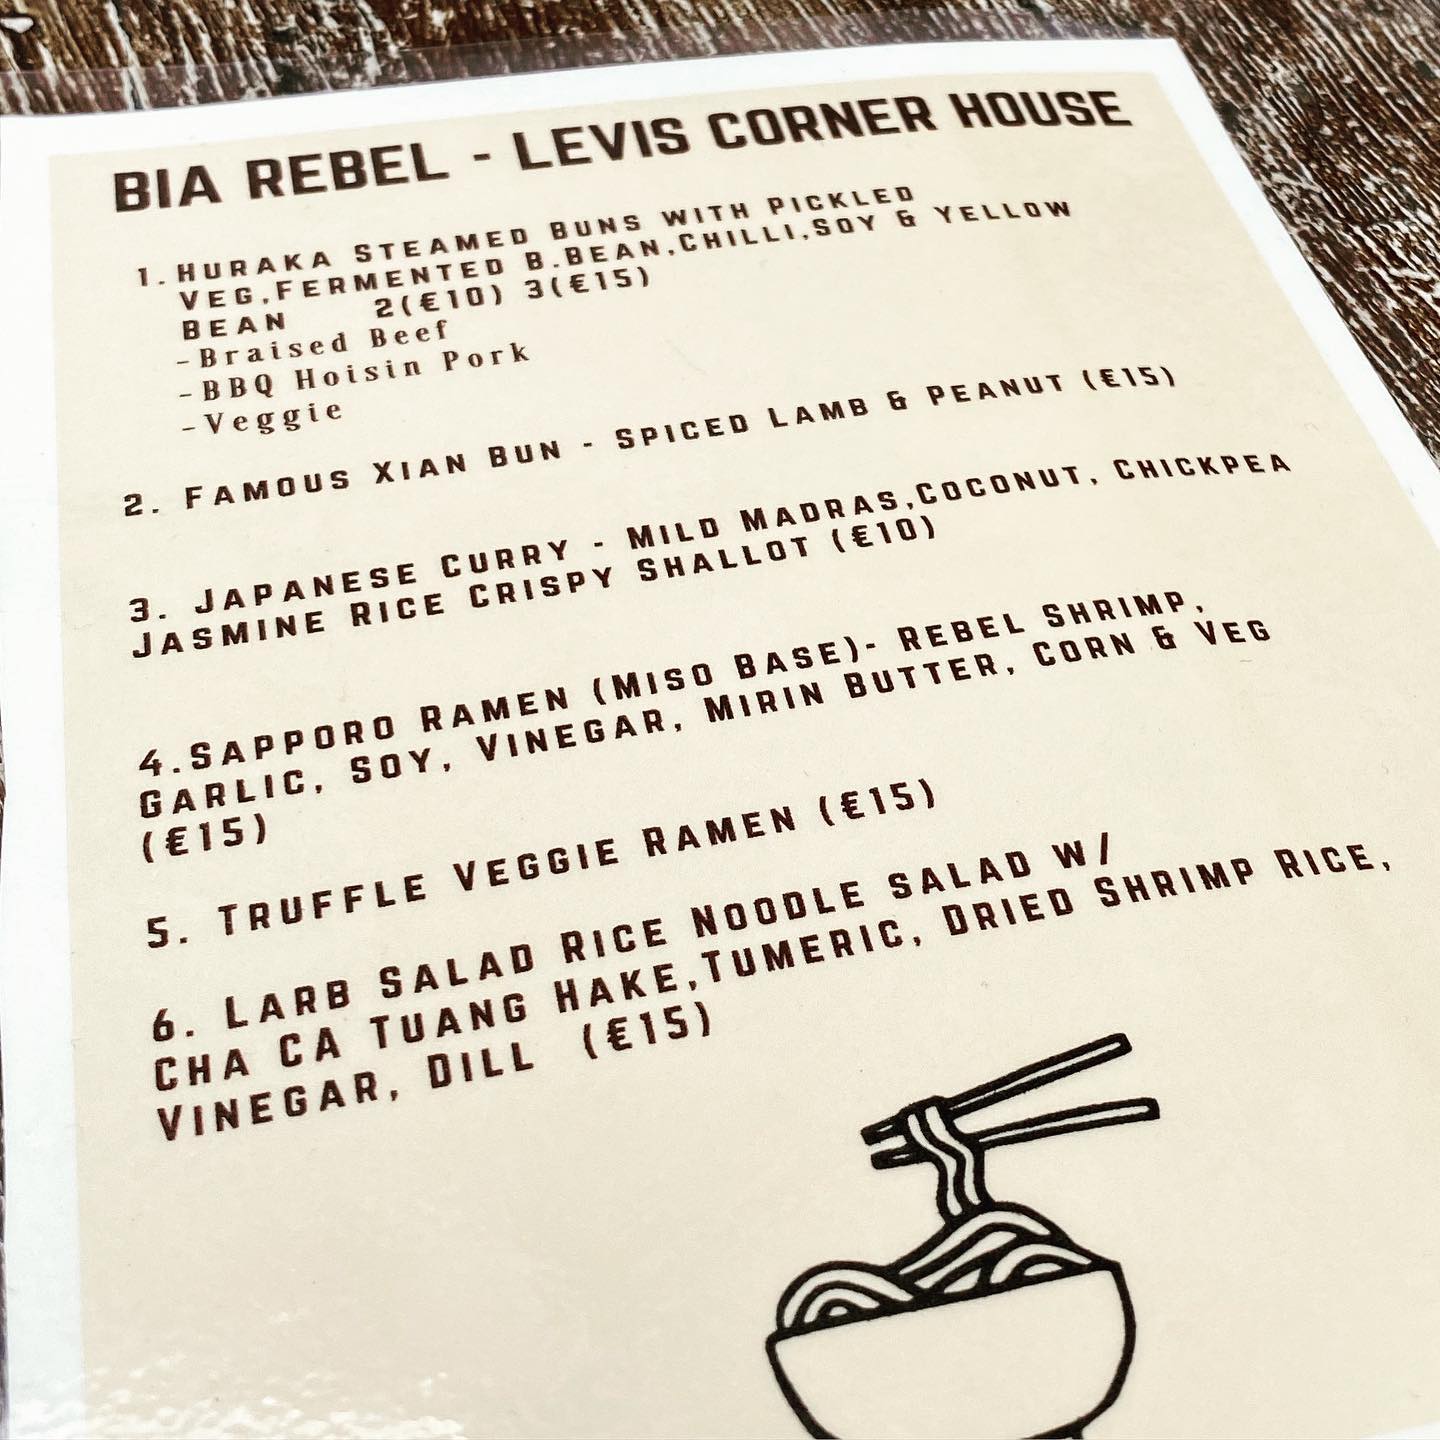 BIA REBEL - LEVIS CORNER HOUSE
1. HURAKA STEAMED BUNS WITH PICKLED
VEG,FERMENTED B.BEAN,CHILLI,SOY & YELLOW
BEAN 2(€10) 3(€15)
-Braised Beef
-BBQ Hoisin Pork
-Veggie
2. FAMOUS XIAN BUN - SPICED LAMB & PEANUT (€15)
3. JAPANESE CURRY - MILD MADRAS,COCONUT, CHICKPEA
JASMINE RICE CRISPY SHALLOT (€10)
4.SAPPORO RAMEN (MISO BASE)- REBEL SHRIMP,
GARLIC, SOY, VINEGAR, MIRIN BUTTER, CORN & VEG
(€15)
5. TRUFFLE VEGGIE RAMEN (€15)
6. LARB SALAD RICE NOODLE SALAD W/
CHA CA TUANG HAKE,TUMERIC, DRIED SHRIMP RICE,
VINEGAR, DILL (€15)